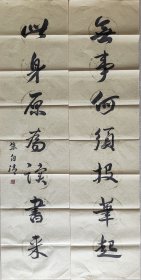 無事何須投筆起
此身原為讀書來
朱自清